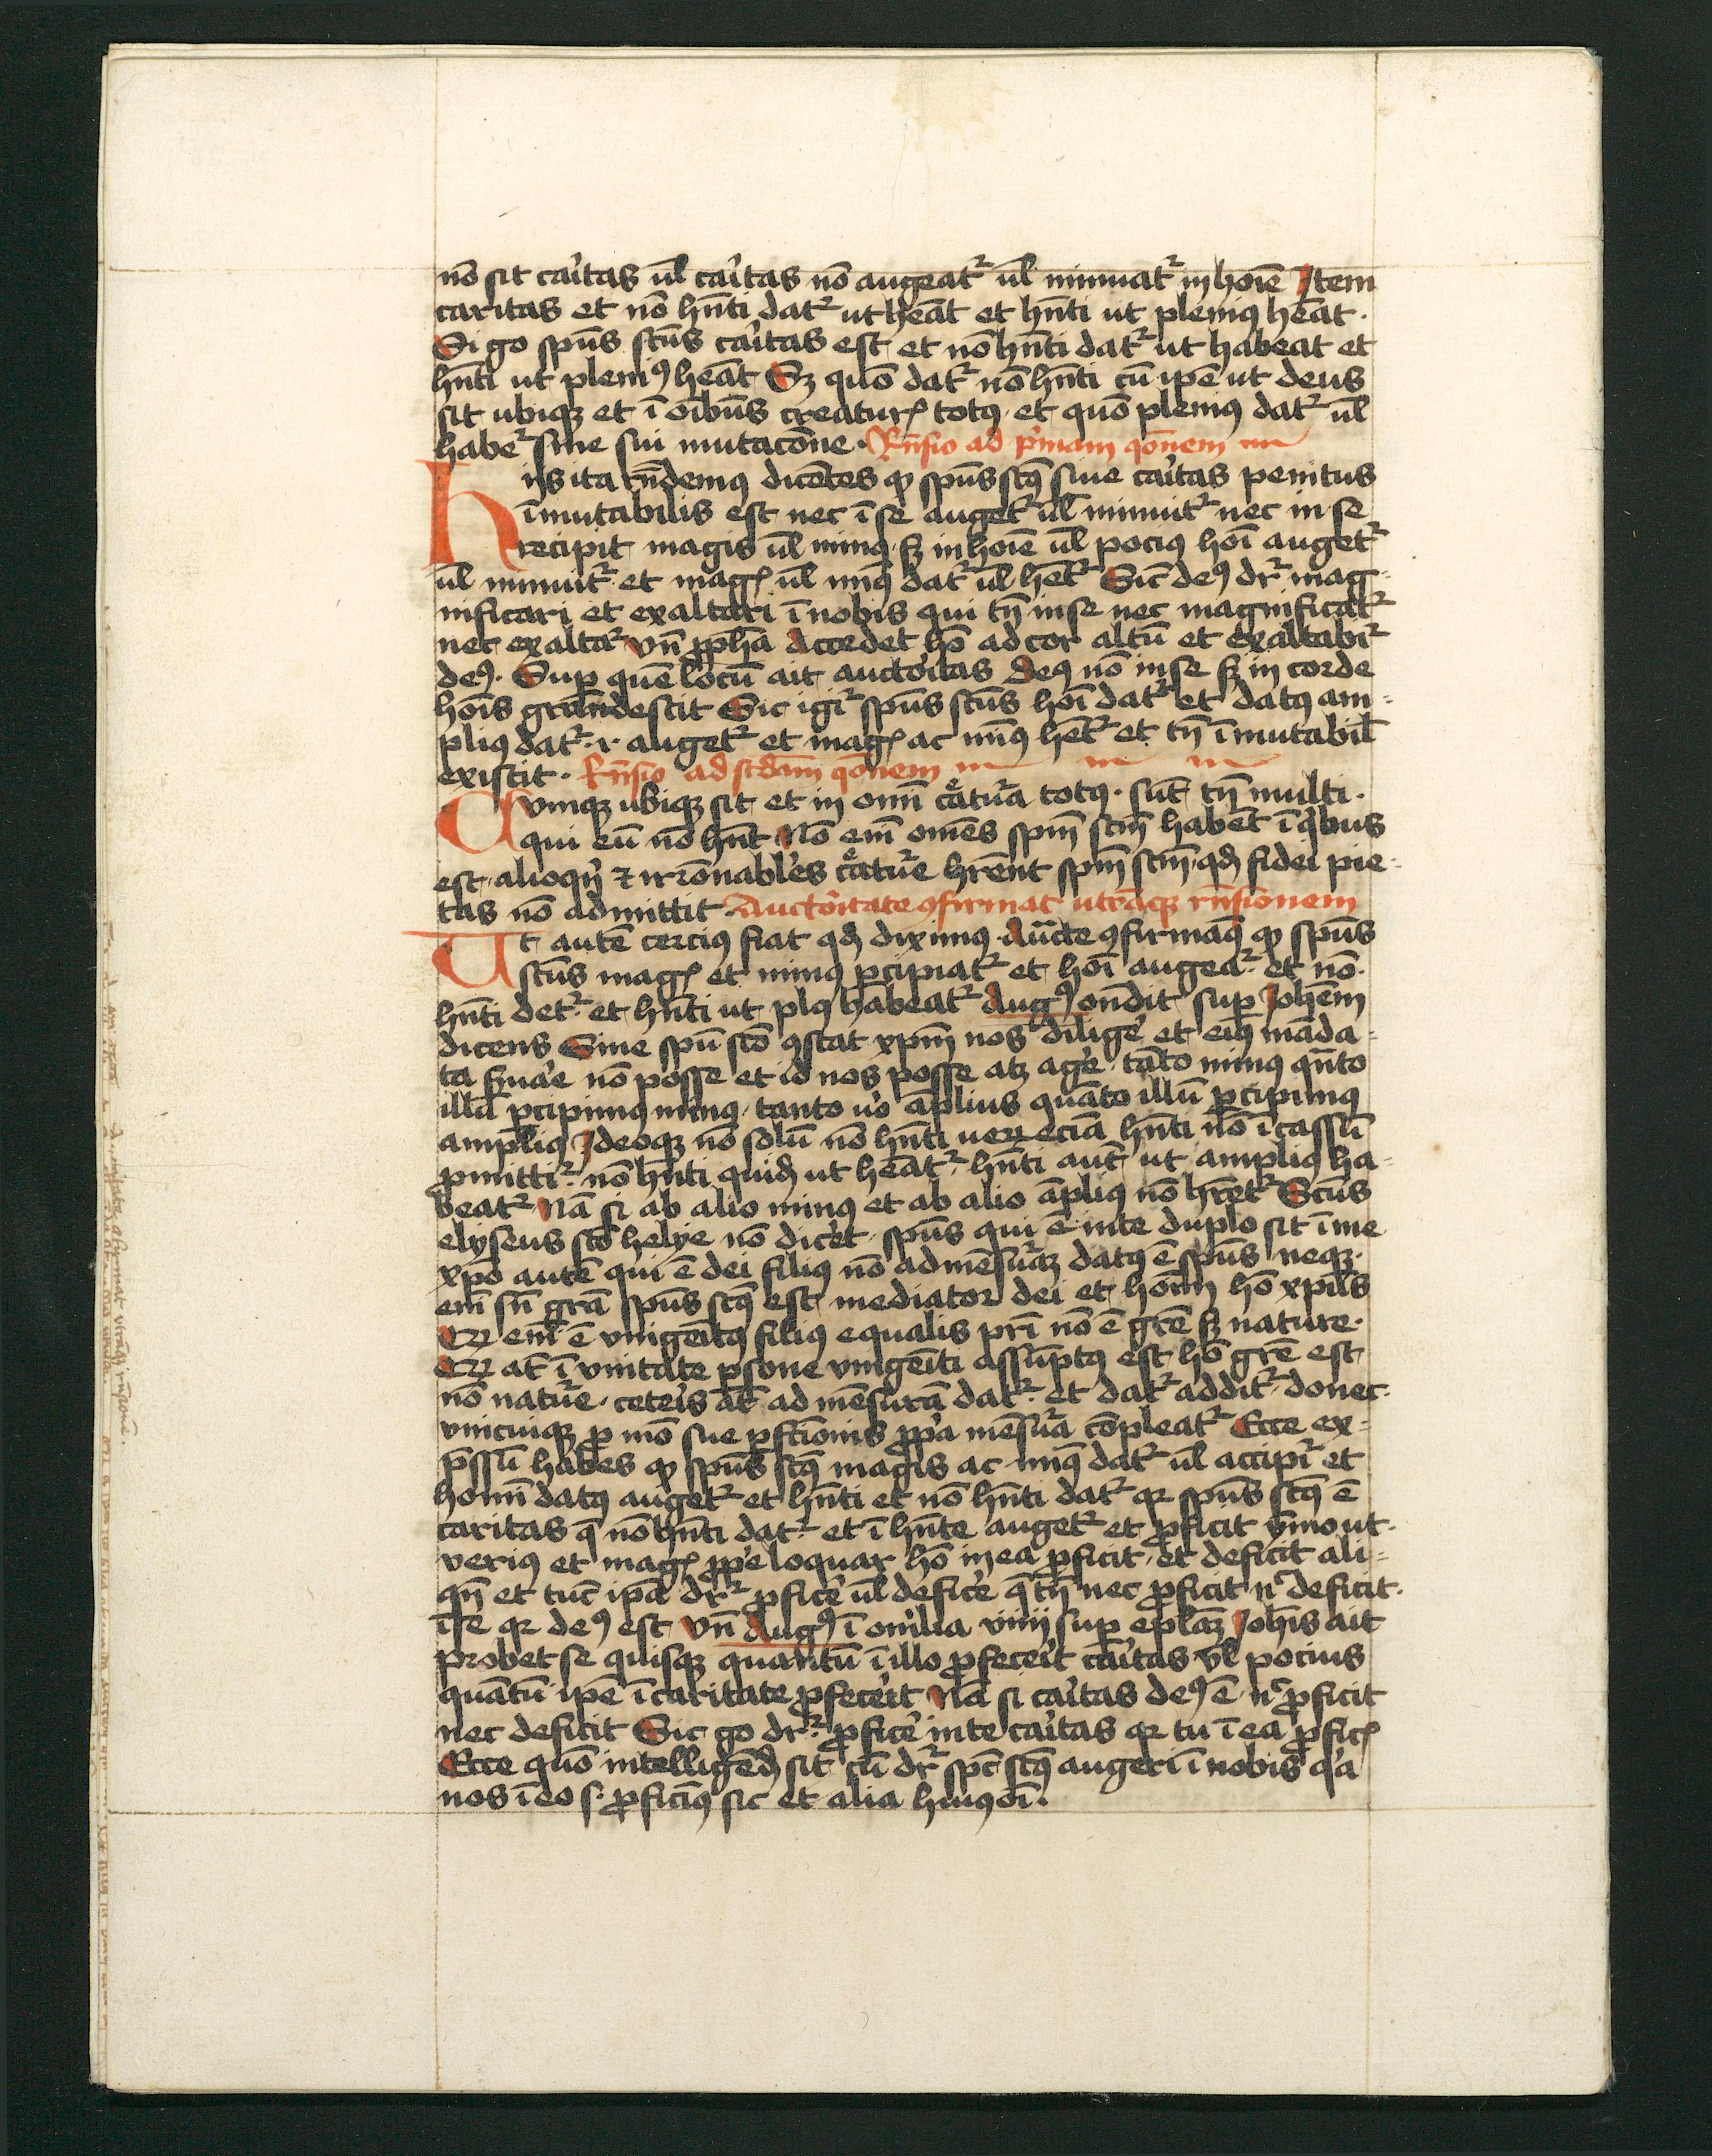 nō sit caítas ūl caítas nō augeatᷣ ūl minuatᷣ in hoīe Item
caritas et nō hn̄ti datᷣ ut heāt et hn̄ti ut pleniꝰ heāt ·
Si gͦ spūs scūs caítas est et nō hn̄ti datᷣ ut habeat et
hn̄ti ut pleniꝰ heāt Sꝫ quō datᷣ nō hn̄ti cū ip̄e ut deus
sit ubiqꝫ et ī oībus creaturꝭ totꝰ et quō pleniꝰ datᷣ ūl
habeᷣ sine sui mutacōne · Rn̄sio ad pͥmam qōnem
Hijs ita rn̄demꝰ dicētes ꝙ spūs scꝰ siue caítas penitus
īmutabilis est nec ī se augetᷣ ūl minuitᷣ nec in se
recipit magis ūl minꝰ sꝫ in hoīe ūl pociꝰ hoī augetᷣ
ūl minuitᷣ et magꝭ ūl mīꝰ datᷣ ūl hētᷣ Sic deꝰ drᷣ mag-
nificari et exaltari ī nobis qui tn̄ in se nec magnificatᷣ
nec exaltaᷣ vn̄ ꝓph̄a Accedet hō ad cor altū et exaltabiᷣ
deꝰ · Suꝑ quē locū ait auctoítas Deꝰ nō in se sꝫ in corde
hoīs grandescit Sic igiᷣ spūs scūs hoī datᷣ et datꝰ am-
pliꝰ datᷣ · i · augetᷣ et magꝭ ac minꝰ hētᷣ et tn̄ īmutabil̄
existit · Rn̄sio ad scd̄am qōnem
Cvmqꝫ ubiqꝫ sit et in om̄i cͣatuͬa totꝰ · sūt tn̄ multi ·
qui eū nō hn̄t Nō em̄ om̄es spm̄ scm̄ habēt ī qͥbus
est alioqͥn ⁊ irrōnabˡes cͣatuͬe hr̄ent spm̄ scm̄ qđ fidei pie-
tas nō admittit · Auctoítate ꝯfirmat utrāqꝫ rn̄sionem
Ut autē cerciꝰ fiat qđ diximꝰ · auc̄te ꝯfirmaꝰ ꝙ spūs
scūs magꝭ et minꝰ ꝑcipiatᷣ et hoī augeaᷣ et nō ·
hn̄ti detᷣ et hn̄ti ut plꝰ habeatᷣ Augꝰ on̄dit suꝑ Joh̄em
dicens Sine spū scō ꝯstat xp̄m nos diligeͬ et eiꝰ māda-
ta ẜuaͬe nō posse et id nos posse atqꝫ ageͬ tāto minꝰ qn̄to
illū ꝑcipimꝰ minꝰ · tanto uͦo ampliꝰ quāto illū ꝑcipimꝰ
ampliꝰ Ideoqꝫ nō solū nō hn̄ti ueꝝ eciā hn̄ti nō īcassū
ꝓmittiᷣ · nō hn̄ti quidē ut heātᷣ · hn̄ti autē ut ampliꝰ ha-
beatᷣ Nā si ab alio minꝰ et ab alio ampliꝰ nō hr̄etᷣ Scūs
elyseus scō helye nō diceͬt · spūs qui ē in te duplo sit ī me
xp̄o autē qui ē dei filiꝰ nō ad mēsuͬaꝫ datꝰ ē spūs neqꝫ ·
em̄ sn̄ grā spūs scꝰ est mediator dei et hoīm hō xp̄us
 em̄ ē vnigeītꝰ filiꝰ equalis pr̄i nō ē grē sꝫ nature ·
 at̄ ī vnitate ꝑsone vnigeīti assūptꝰ est hō grē est
nō natuͬe · ceteͥs at̄ ad mēsurā datᷣ · et datᷣ additᷣ donec ·
vnicuiqꝫ ꝓ mō sue ꝑfc̄ionis ꝓpͥa mēsuͬa cōpleatᷣ Ecce ex-
pͬssū habes ꝙ spūs scꝰ magis ac mīꝰ datᷣ ūl accipiᷣ et
homī datꝰ augetᷣ et hn̄ti et nō hn̄ti datᷣ qꝛ spūs scꝰ ē
caritas q̄ nō hn̄ti datᷣ et ī hn̄te augetᷣ et ꝓficit ymo ut ·
veriꝰ et magꝭ ꝓpͥe loquar hō in ea ꝓficit et deficit ali-
qn̄ et tūc ip̄a drᷣ ꝓficeͬ ūl deficeͬ q̄ tn̄ nec ꝓficit nͨ deficit ·
ī se qꝛ deꝰ est Vn̄ Augꝰ ī omͥlia viiij suꝑ eplāꝫ Joh̄is ait
Probet se quisqꝫ quantū ī illo ꝓfeceͥt caítas vl̄ pocius
quātū ip̄e ī caritate ꝓfeceͥt Nā si caítas deꝰ ē nͨ ꝓficit
nec deficit Sic gͦ drᷣ ꝓficeͬ in te caítas qꝛ tu ī ea ꝓficꝭ
Ecce quō intelligēđ sit cū drᷣ spc̄ scꝰ augeri ī nobis qͥa
nos ī eo s · ꝓficimꝰ sic et alia huiꝰōi ·